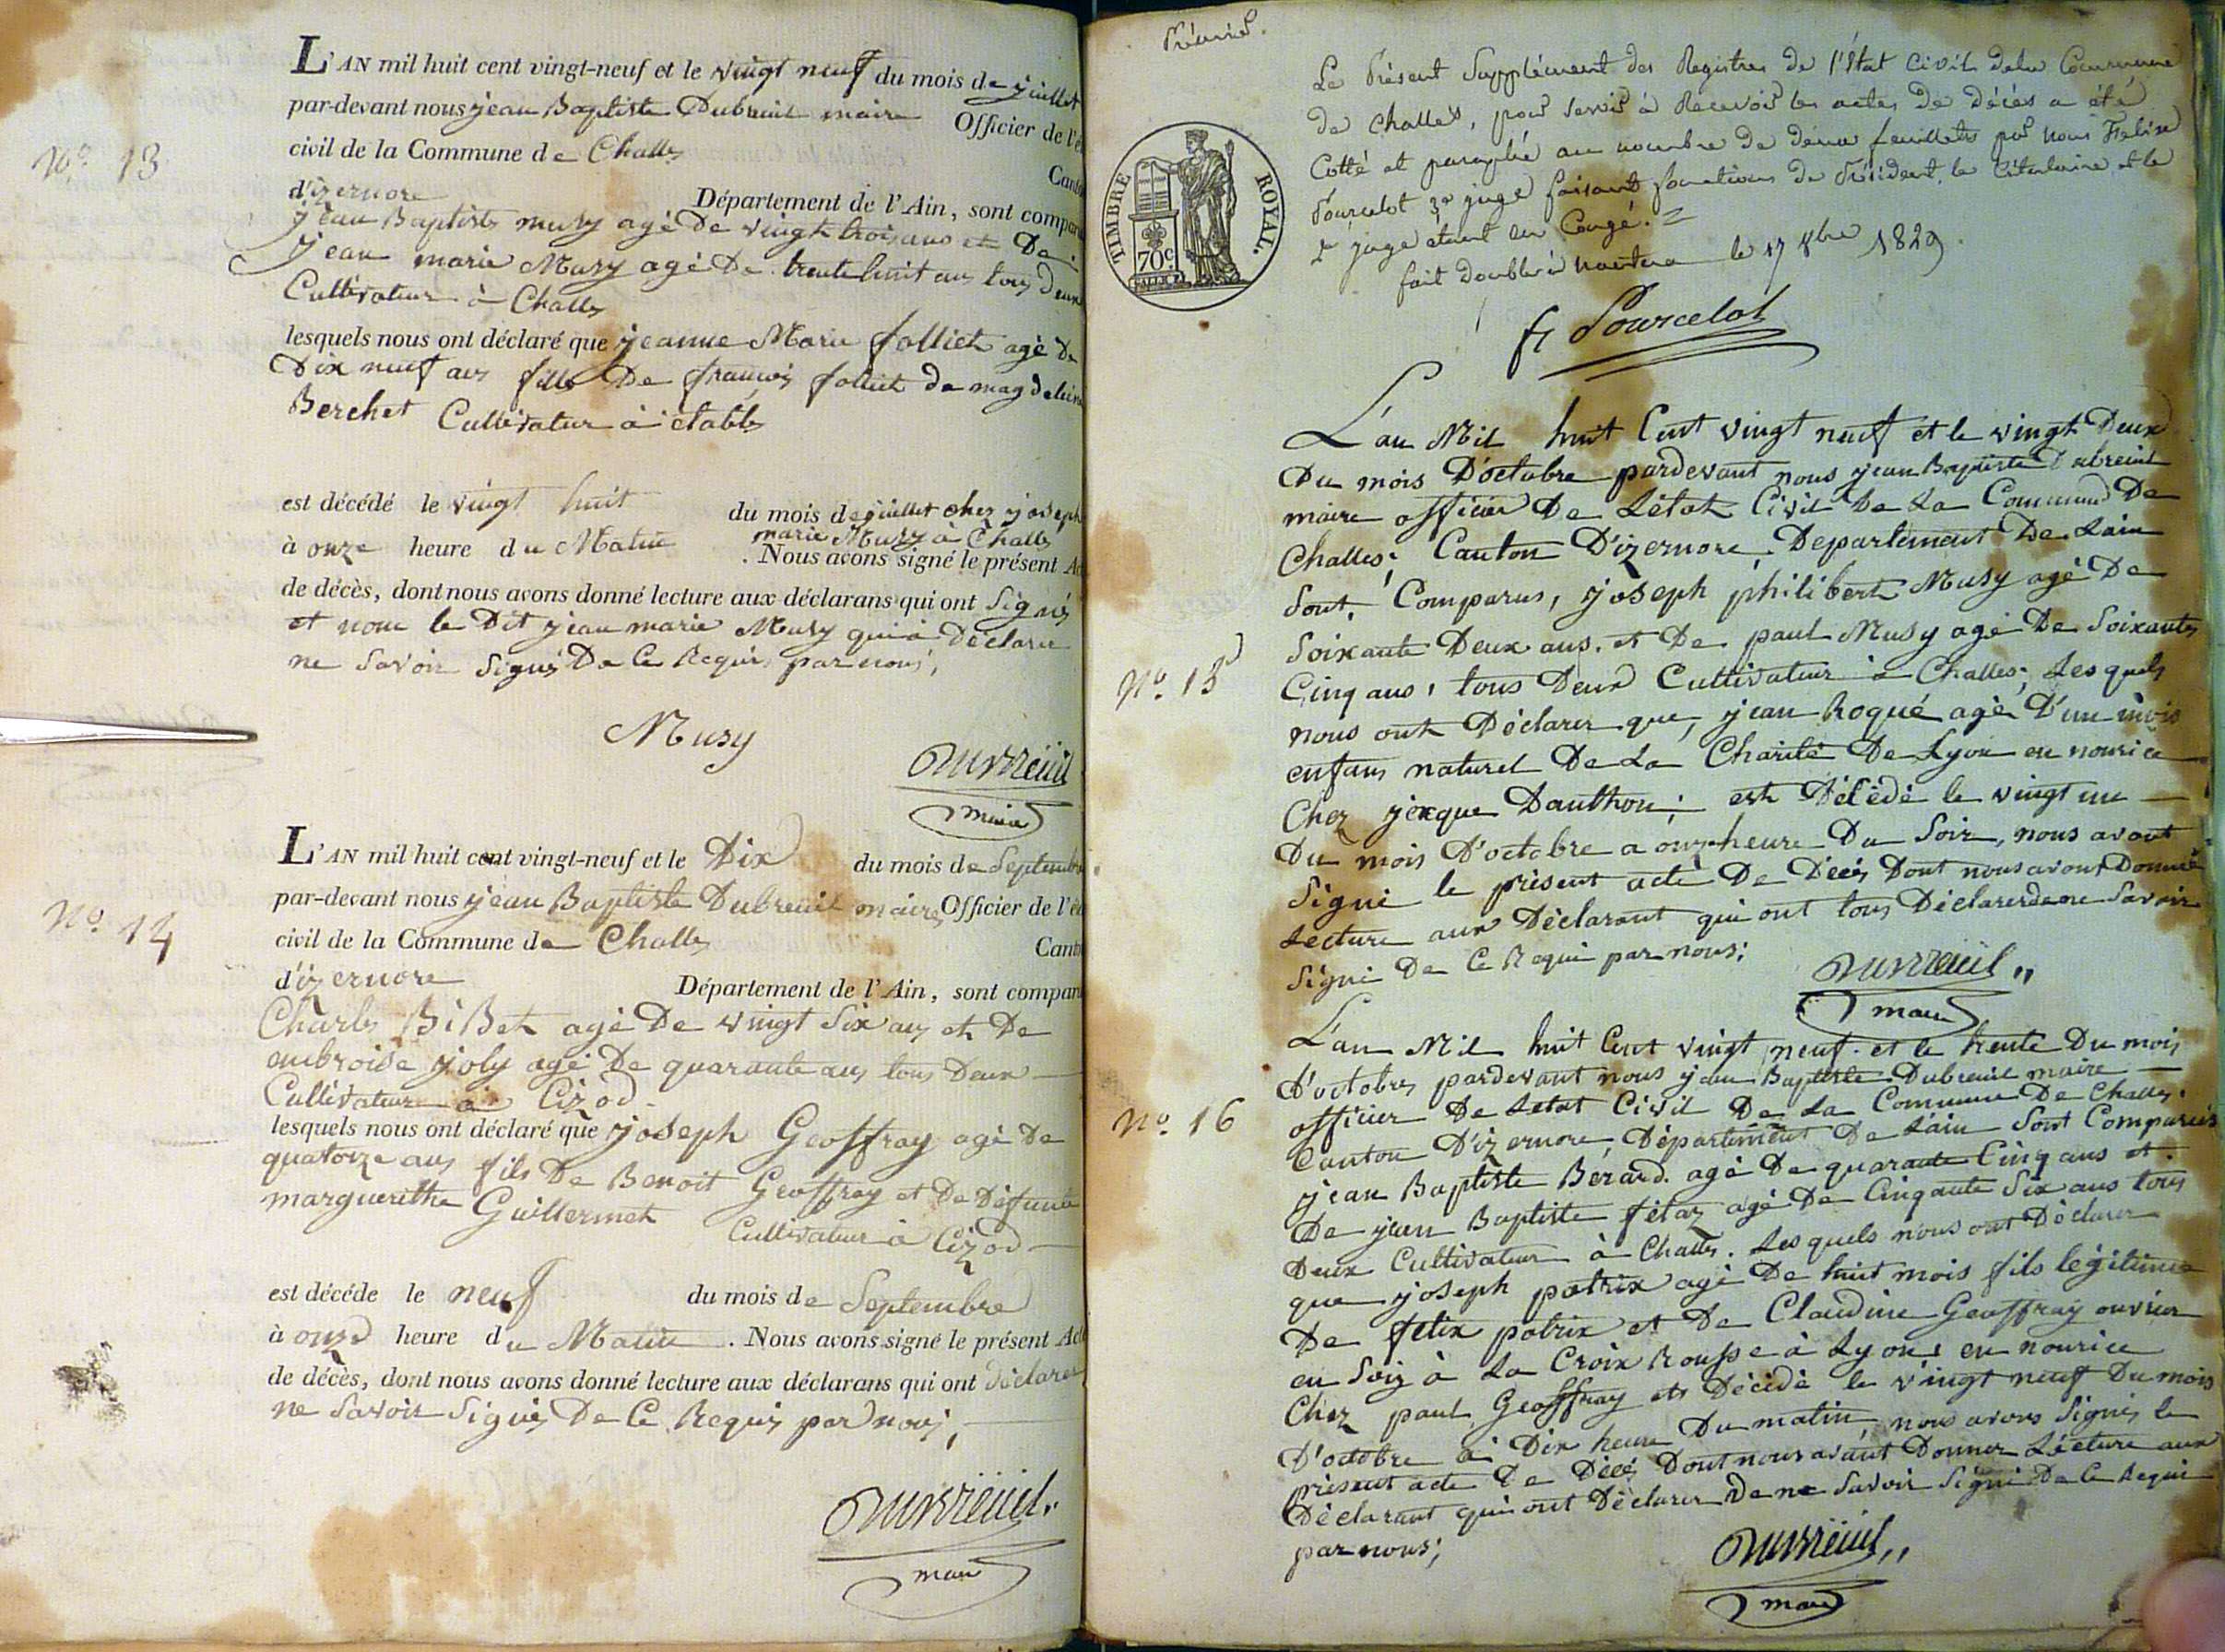 L'AN mil huit cent vingt-neuf et le vingt neuf du mois de juillet
par-devant nous jean Baptiste Dubreuil maire Officier de l'é
civil de la Commune de Challes
Cant
N.º 13
d'izernore Département de l'Ain, sont compar
jean Baptiste musy agé De vingt trois ans et De
jean marie Musy agé De trente huit ans tous deux
Cultivateur à Challes
lesquels nous ont déclaré que jeanne Marie folliet agé De
Dix neuf ans fille De françois folliet de magdeleine
Berchet Cultivateur à étables
est décédé le vingt huit du mois de juillet chez joseph
marie Musy à Challes
à onze heure du Matin . Nous avons signé le présent Ac
de décès, dont nous avons donné lecture aux déclarans qui ont Signés
et nom le Dit jean marie Musy qui a Déclaru
ne Savoir Signé De Ce Requis par nous,
Musy
Dubreuil
maire
L'AN mil huit cent vingt-neuf et le Dix du mois de Septembre
par-devant nous jean Baptiste Dubreuil maire Officier de l'é
N.º 14
civil de la Commune de Challes Cant
d'izernore Département de l'Ain, sont compar
Charles BiBet agé De vingt Six ans et De
embroise joly agé De quarante ans tous Deux
Cultivateur à Cizod
lesquels nous ont déclaré que joseph Geoffray agé De
quatorze ans fils De Benoit Geoffray et De Défunte
marguerithe Guillermet Cultivateur à Cizod
est décéde le neuf du mois de Septembre
à onze heure du Matin . Nous avons signé le présent Act
de décès, dont nous avons donné lecture aux déclarans qui ont déclarer
ne Savoir Signés De Ce Requis par nous,
Dubreuil
maire
Le Présent Supplément des Registres de l'État Civil dela Commune
de Challes, pour servir à Recevoir les actes de décès a été
Cotté et paraphé au nombre de deux feuillets par nous
Pourcelot 3e juge faisant fonctions de Président, le titulaire et le
juge étant en Congé.
fait double à nantua le 17 8bre 1829.
TIMBRE ROYAL.
70c
fs Pourcelot
L'an Mil huit Cent vingt neuf et le vingt Deux
Du mois D'octobre pardevant nous jean Baptiste Dubreuil
maire officier De Létat Civil De La Commune De
Challes; Canton D'izernore Departement De Lain
Sont Comparus, joseph philibert Musy agé De
Soixante Deux ans. et De paul Musy agé De Soixante
N.º 15
Cinq ans, tous Deux Cultivateur à Challes; Lesquels
nous ont Déclarer que, jean Roqué agé D'un mois
enfans naturel De La Charité De Lyon en nourice
Chez jacque Danthon; est Décédé le vingt un
Du mois D'octobre a onze heure Du Soir, nous avont
Signé le présent acte De Décés Dont nous avont Donné
Lecture aux Déclarant qui ont tous Déclarer de ne Savoir
Signé De Ce Requi par nous;
Dubreuil
maire
L'an Mil huit Cent vingt neuf. et le trente Du mois
D'octobre, pardevant nous jean Baptiste Dubreuil maire
N.º 16
officier De Létat Civil De La Commune De Challes.
Canton D'izernore, Département De Lain Sont Comparus
jean Baptiste Bérard. agé De quarante Cinq ans et
De jean Baptiste fétaz agé De Cinqante Six ans tous
Deux Cultivateur à Challes. Lesquels nous ont Déclarer
que joseph patrix agé De huit mois fils légitime
De félix patrix et De Claudine Geoffray ouvrier
en Soiy à La Croix Rousse à Lyon en nourice
Chez paul Geoffray et Décédé le vingt neuf Du mois
D'octobre à Dix heure Du matin, nous avons Signés le
présent acte De Décés Dont nous avont Donner Lécture aux
Déclarant qui ont Déclarer De ne Savoir Signé De Ce Requi
par nous;
Dubreuil
maire